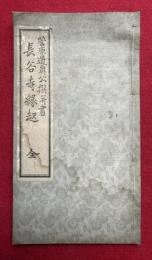 菅原道真公撰并書
長谷寺縁起 全